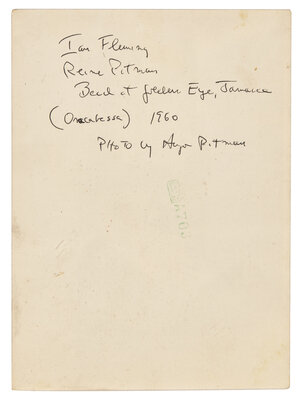 Ian Fleming
Reine Pitman
Beach at Golden Eye, Jamaica
(Oracabessa) 1960
Photo by Hugo Pitman